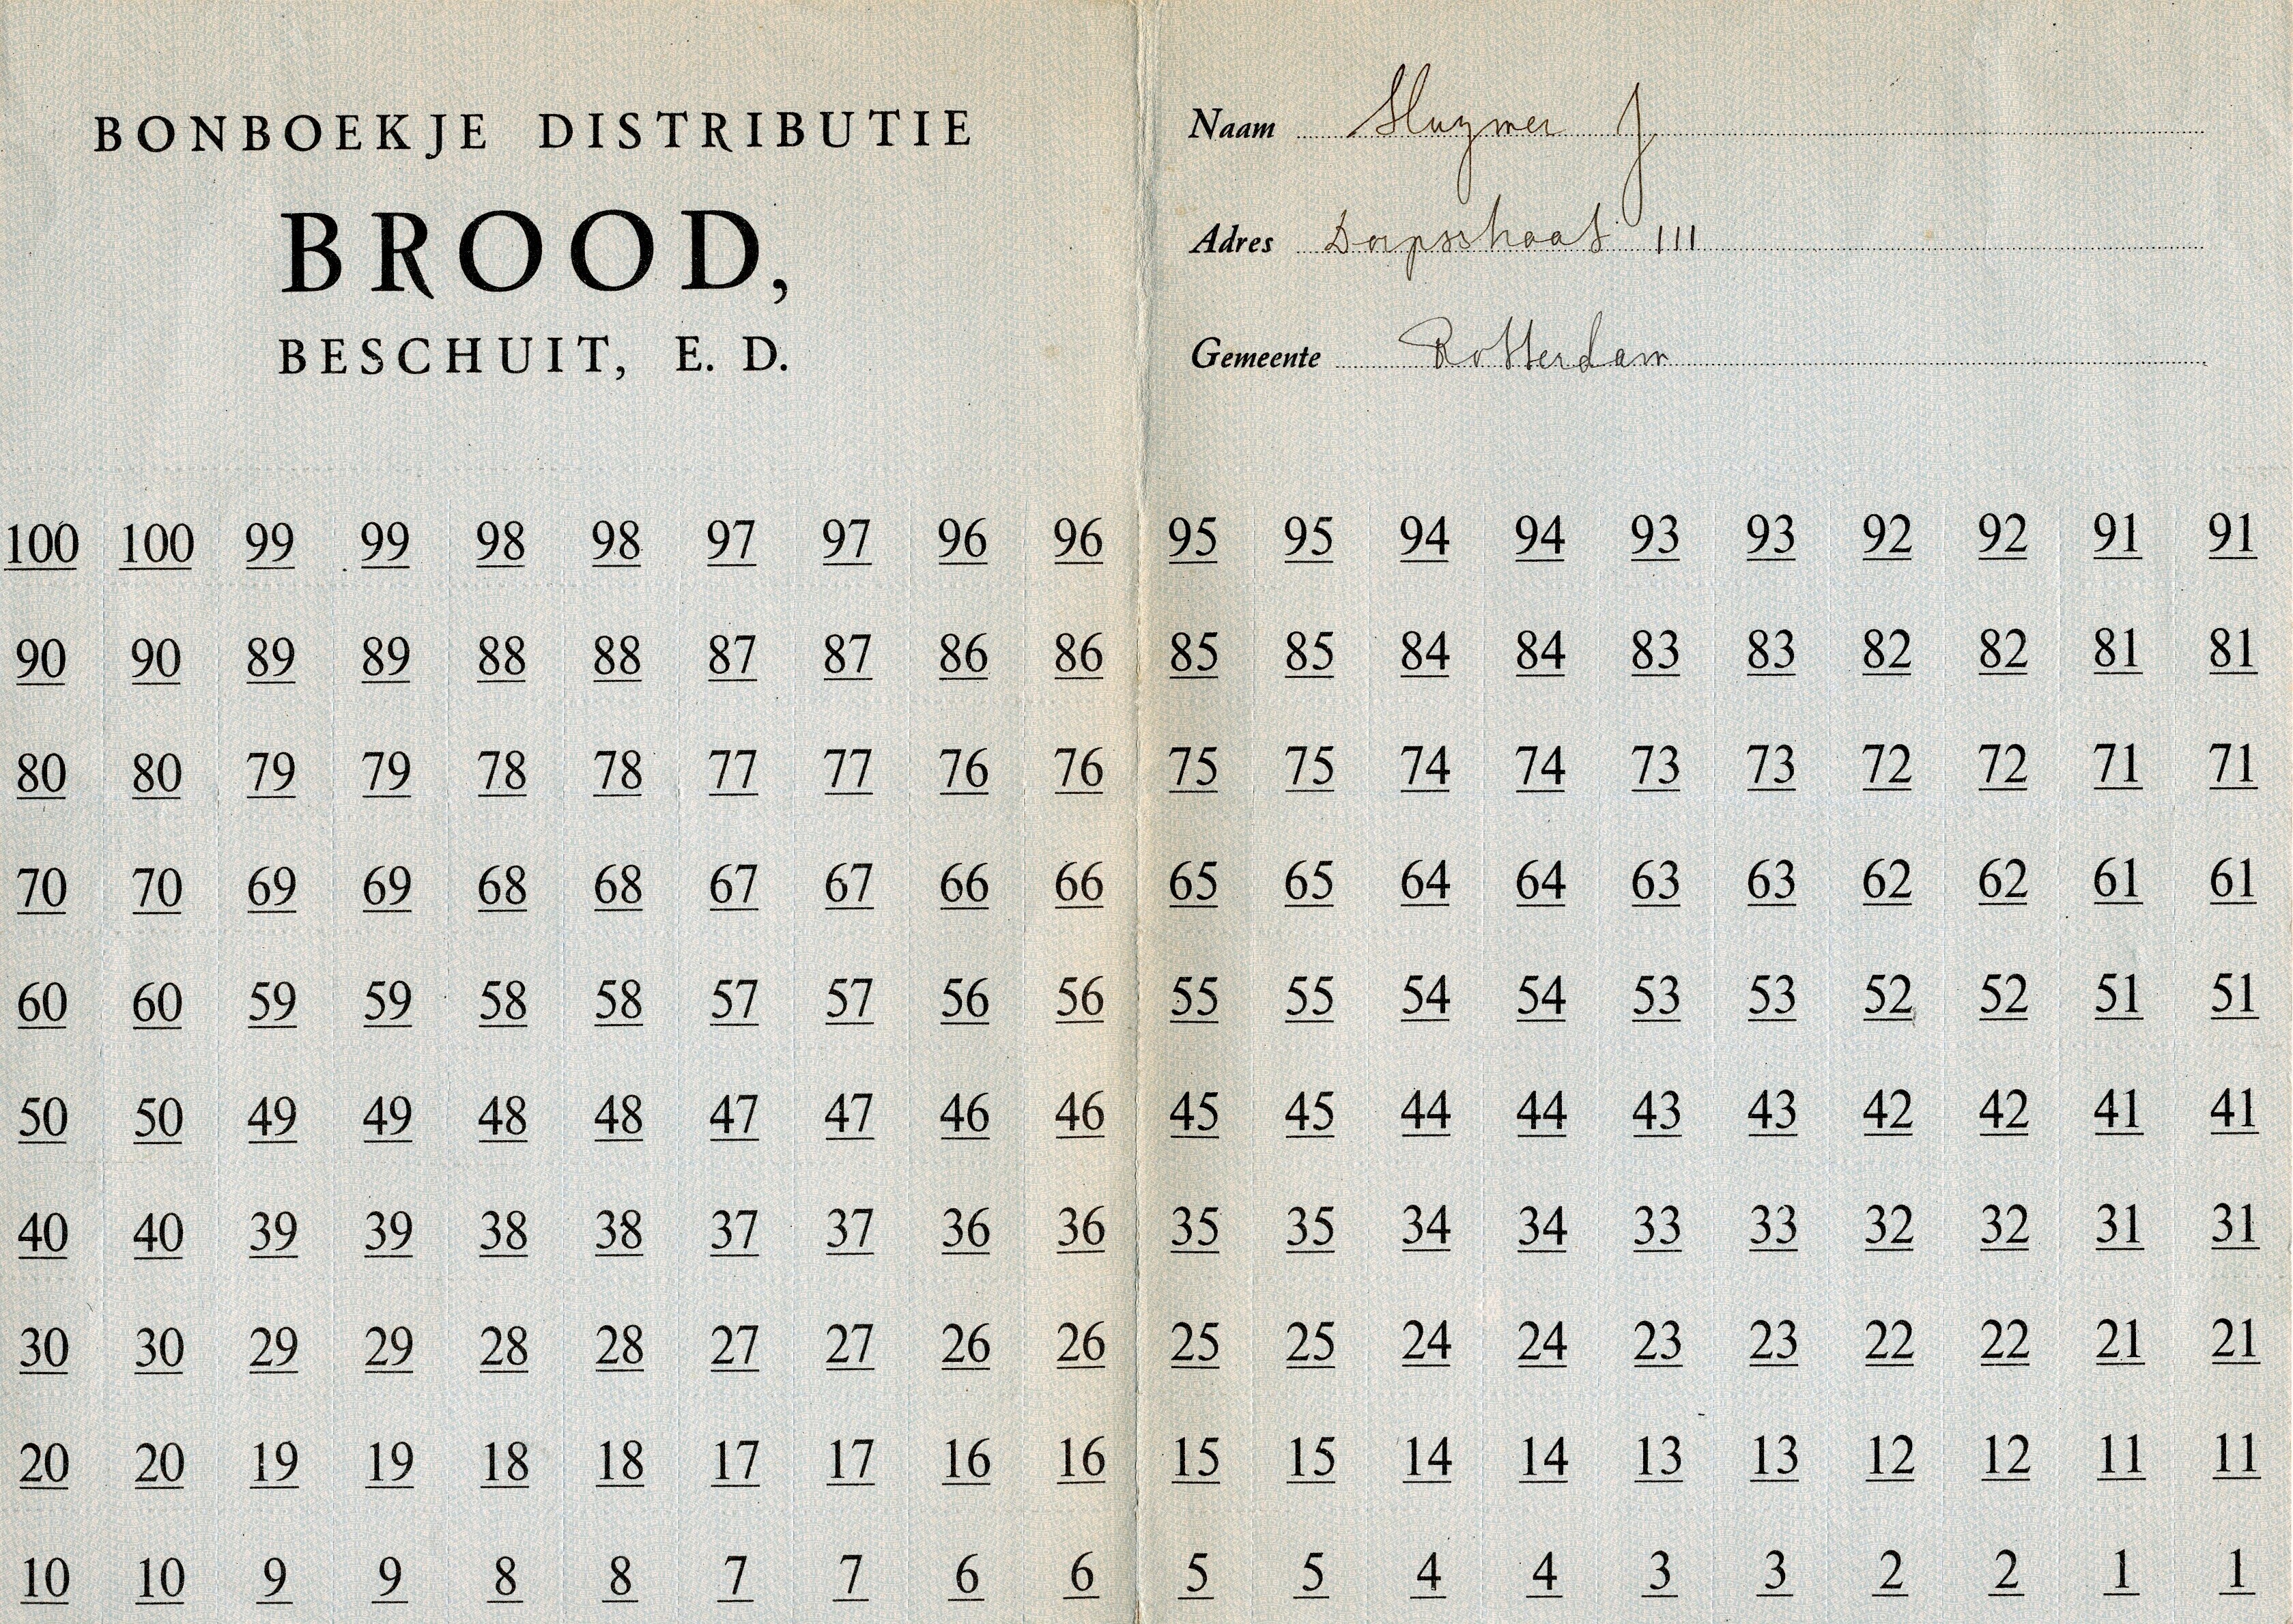 BONBOEKJE DISTRIBUTIE
BROOD,
BESCHUIT, E. D.
Naam Sluymer J.
Adres Dorpsstraat 111
Gemeente Rotterdam
100 100 99 99 98 98 97 97 96 96 95 95 94 94 93 93 92 92 91 91
90 90 89 89 88 88 87 87 86 86 85 85 84 84 83 83 82 82 81 81
80 80 79 79 78 78 77 77 76 76 75 75 74 74 73 73 72 72 71 71
70 70 69 69 68 68 67 67 66 66 65 65 64 64 63 63 62 62 61 61
60 60 59 59 58 58 57 57 56 56 55 55 54 54 53 53 52 52 51 51
50 50 49 49 48 48 47 47 46 46 45 45 44 44 43 43 42 42 41 41
40 40 39 39 38 38 37 37 36 36 35 35 34 34 33 33 32 32 31 31
30 30 29 29 28 28 27 27 26 26 25 25 24 24 23 23 22 22 21 21
20 20 19 19 18 18 17 17 16 16 15 15 14 14 13 13 12 12 11 11
10 10 9 9 8 8 7 7 6 6 5 5 4 4 3 3 2 2 1 1